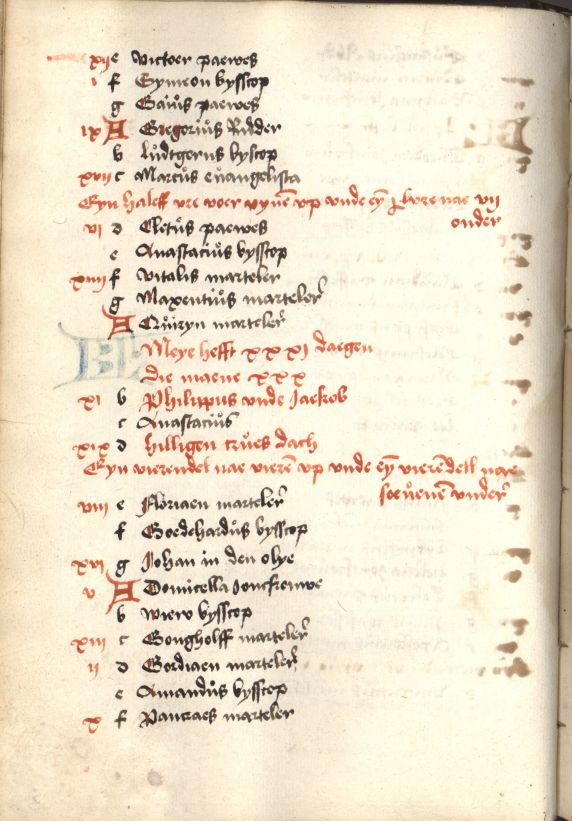 xij e Victoer paewes
i f Symeon bysscop
g Gaiůs paewes
ix A Gregoriůs Ridder
b lůdtgerus byscop
xvij c Marcůs eůangelista
Eyn halff vre voer vyuē vp vnde eȳ vre nae vij
onder
vi d Cletůs paewes
e Anastaciůs bysscop
xiiij f Vitalis marteler
g Maxentiůs marteler
A Qůiryn marteler
Meye hefft xxxi daegen
die maene xxx
xi b Philippus vnde Jacob
c Anastaciůs
xix d hilligen crůes dach
Eyn vierendel nae vierē vp vnde eȳ vierendell nae
soeůenē vnder
viij e Floriaen marteler
f Goedehardůs bysscop
xvi g Johan in den olye
v A Domicella Joncfrouwe
b wiero bysscop
xiij c Gongholff marteler
ij d Gordiaen marteler
e Amandůs bysscop
x f Pancraes marteler